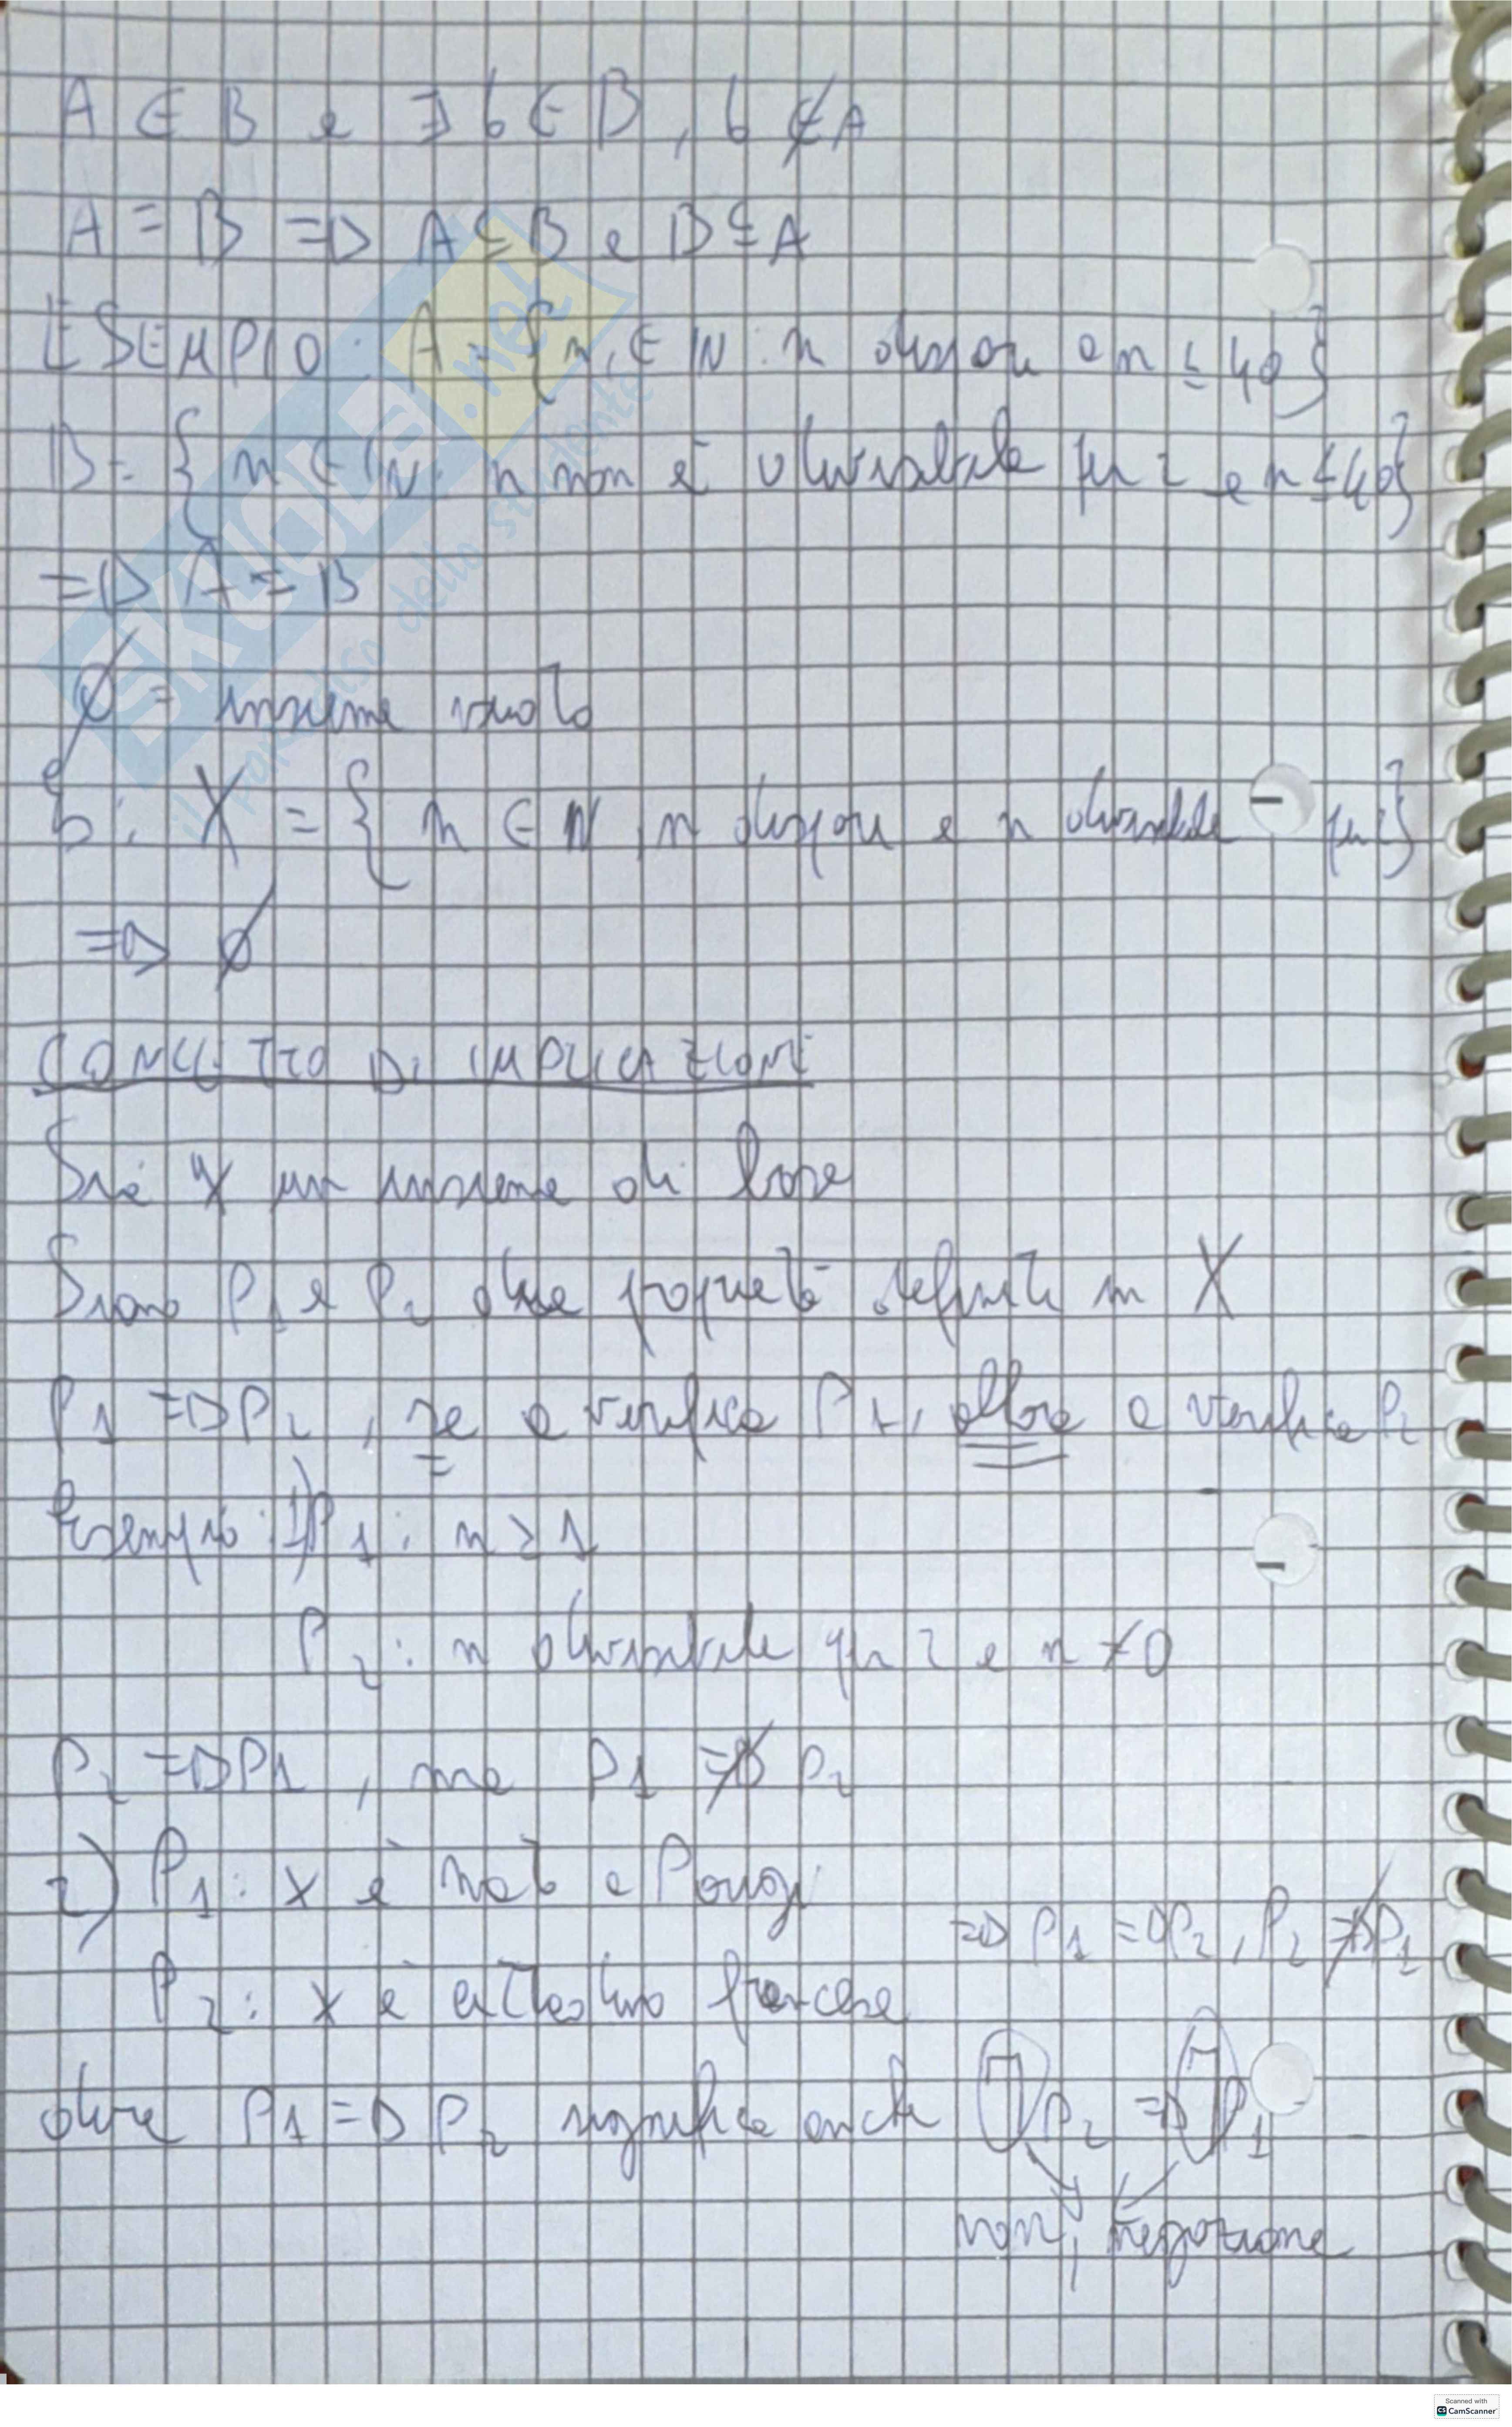 A ∈ B e ∃ b ∈ B, b ∉ A
A = B => A ⊆ B e B ⊆ A
ESEMPIO: A = {n ∈ ℕ: n dispari e n ≤ 40}
B = {n ∈ ℕ: n non è divisibile per 2 e n ≤ 40}
=> A = B
∅ = insieme vuoto
Es: X = {n ∈ ℕ, n dispari e n divisibile per 2}
=> ∅
CONCETTO DI IMPLICAZIONE
Sia X un insieme di base
Siano P1 e P2 due proprietà definite in X
P1 => P2, se è verifica P1, allora è verifica P2
Esempio: 1) P1: n > 1
P2: n divisibile per 2 e n ≠ 0
P2 => P1, ma P1 ≠> P2
2) P1: x è nato a Parigi
=> P1 => P2, P2 ≠> P1
P2: x è cittadino francese
dire P1 => P2 significa anche ¬P2 => ¬P1
non, negazione
SKUOLA.net
il paradiso dello studente
Scanned with
CS CamScanner